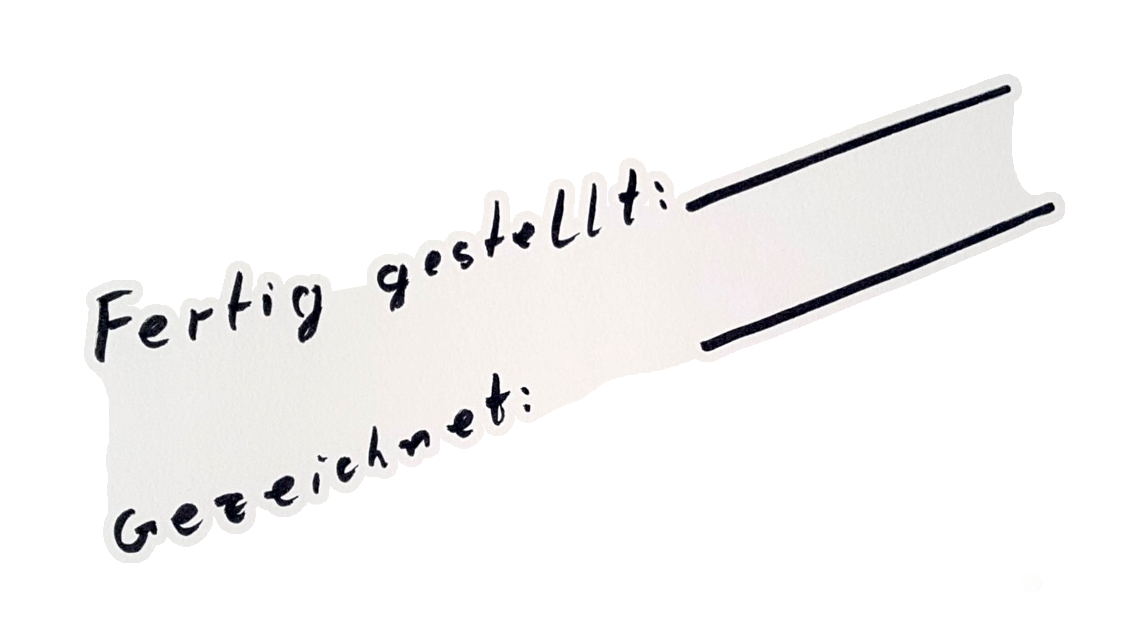 Fertig gestellt:
Gezeichnet: